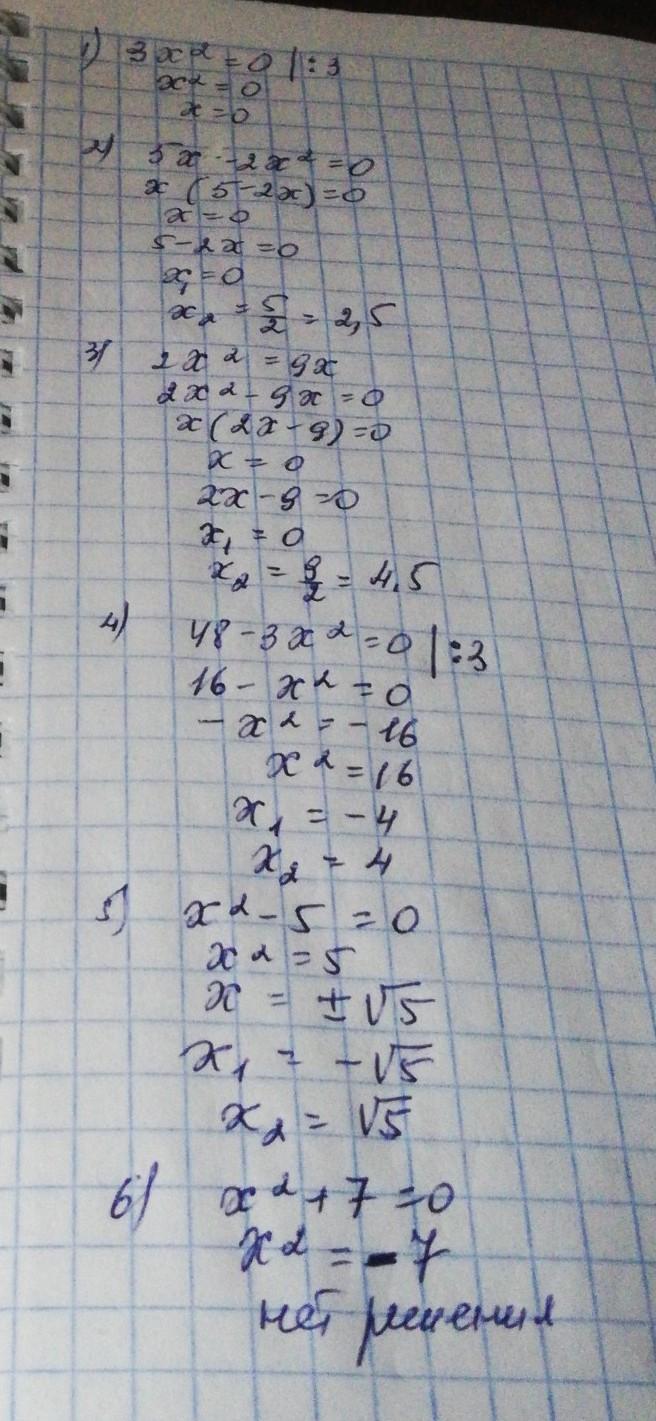 1) 3x² = 0 | : 3
x² = 0
x = 0
2) 5x - 2x² = 0
x (5 - 2x) = 0
x = 0
5 - 2x = 0
x₁ = 0
x₂ = 5/2 = 2,5
3) 2x² = 9x
2x² - 9x = 0
x (2x - 9) = 0
x = 0
2x - 9 = 0
x₁ = 0
x₂ = 9/2 = 4.5
4) 48 - 3x² = 0 | : 3
16 - x² = 0
- x² = - 16
x² = 16
x₁ = - 4
x₂ = 4
5) x² - 5 = 0
x² = 5
x = ± √5
x₁ = - √5
x₂ = √5
6) x² + 7 = 0
x² = - 7
нет решения